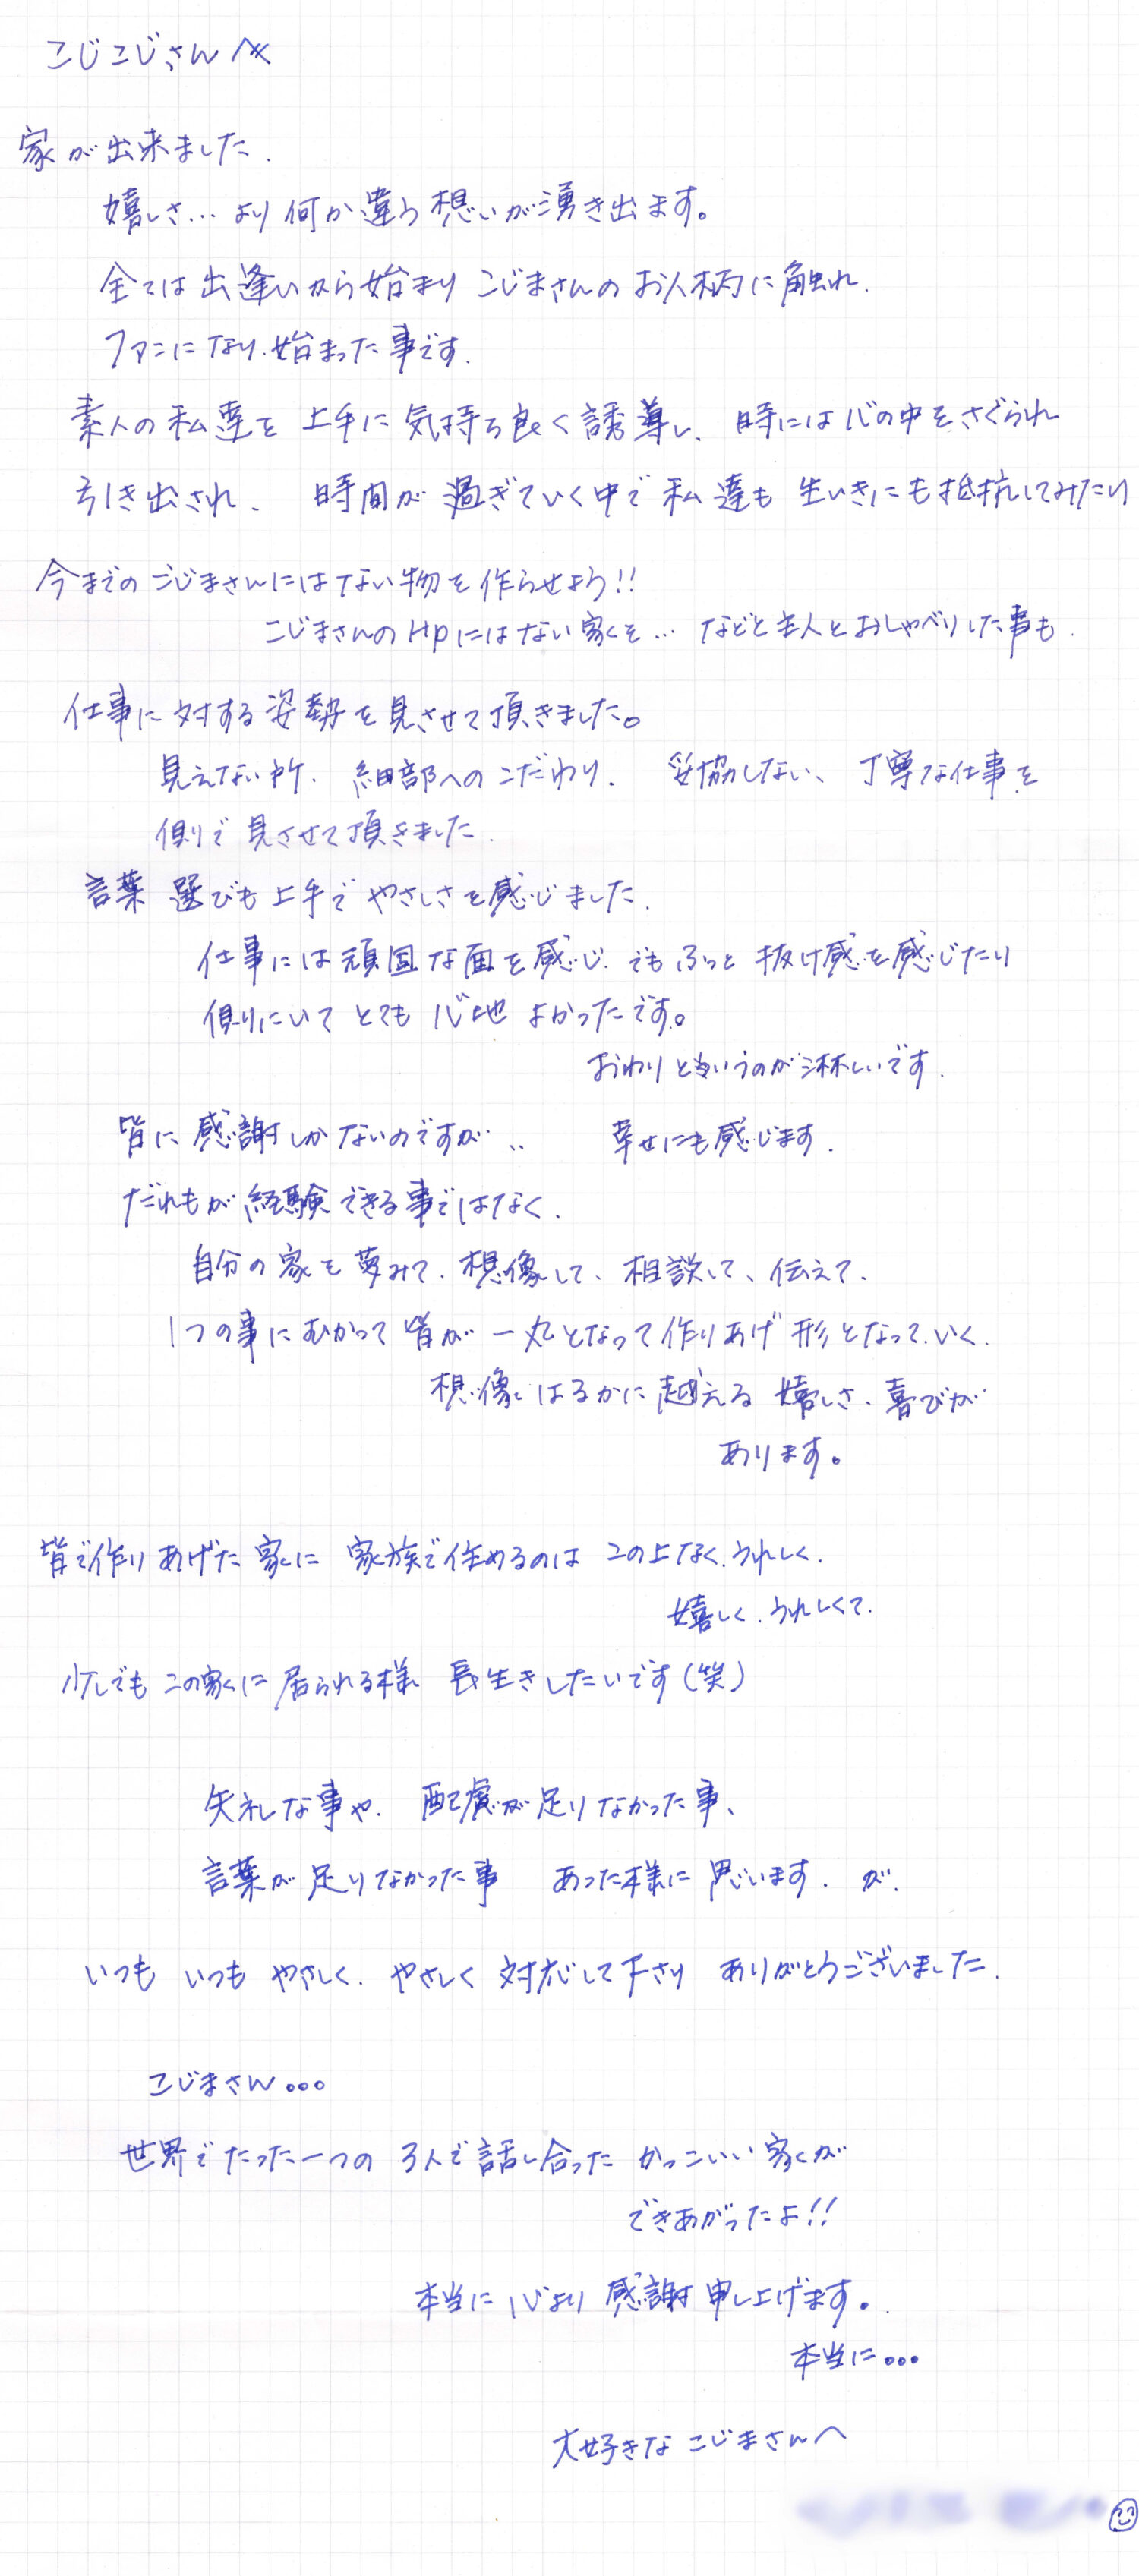 こじこじさんへ
家が出来ました.
嬉しさ… より何か違う想いが湧き出ます。
全ては出逢いから始まり こじまさんのお人柄に触れ.
ファンになり.始まった事です.
素人の私達を 上手に気持ち良く誘導し、時には心の中をさぐられ
引き出され、 時間が過ぎていく中で私達も生いきにも抵抗してみたり
今までのこじまさんにはない物を作らせよう!!
こじまさんのHpにはない家を… などと主人とおしゃべりした事も.
仕事に対する姿勢を見させて頂きました。
見えない所. 細部へのこだわり. 妥協しない、丁寧な仕事を
側で見させて頂きました.
言葉選びも上手でやさしさを感じました.
仕事には頑固な面を感じ.でもふっと抜け感を感じたり
側にいてとても心地よかったです。
おわりというのが淋しいです.
皆に感謝しかないのですが.. 幸せにも感じます.
だれもが経験できる事ではなく.
自分の家を夢みて.想像して、相談して、伝えて.
1つの事にむかって皆が一丸となって作りあげ形となって.いく.
想像はるかに越える嬉しさ、喜びが
あります。
皆で作りあげた家に 家族で住めるのは この上なく.うれしく.
嬉しく.うれしくて.
少しでもこの家に居られる様 長生きしたいです(笑)
失礼な事や. 配慮が足りなかった事、
言葉が足りなかった事 あった様に思います. が.
いつも いつも やさしく. やさしく対応して下さり ありがとうございました.
こじまさん...
世界でたった一つの 3人で話し合った かっこいい家が
できあがったよ!!
本当に心より感謝申し上げます。
本当に...
大好きなこじまさんへ